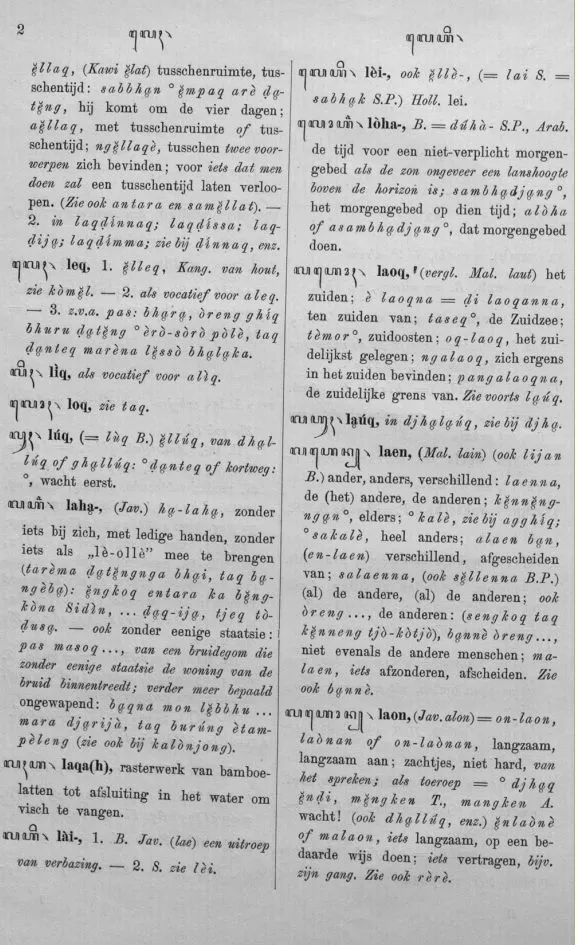 2
ĕ̥llaq, (Kawi ĕ̥lat) tusschenruimte, tus-
schentijd: sabbhḁn ° ĕ̥mpaq arè dḁ-
tĕ̥ng, hij komt om de vier dagen;
aĕ̥llaq, met tusschenruimte of tus-
schentijd; ngĕ̥llaqè, tusschen twee voor-
werpen zich bevinden; voor iets dat men
doen zal een tusschentijd laten verloo-
pen. (Zie ook antara en samĕ̥llat). —
2. in laqḍínnaq; laqḍíssa; laq-
ḍijḁ; laqḍímma; zie bij ḍínnaq, enz.
leq, 1. ĕ̥lleq, Kang. van hout,
zie kòmĕ̥l. — 2. als vocatief voor aleq.
— 3. z.v.a. pas: bhḁrḁ, òreng ghíq
bhuru dḁtĕ̥ng °èrò-sòrò pòlè, taq
dḁnteq marèna lĕ̥ssò bhḁlḁka.
lìq, als vocatief voor alìq.
loq, zie taq.
lúq, (= lùq B.) ĕ̥llúq, van dhḁl-
lúq of ghḁllúq: °dḁnteq of kortweg:
°, wacht eerst.
lahḁ-, (Jav.) hḁ-lahḁ, zonder
iets bij zich, met ledige handen, zonder
iets als „lè-ollè” mee te brengen
(tarèma dḁtĕ̥ngnga bhḁi, taq bḁ-
ngèbḁ): ĕ̥ngkoq entara ka bĕ̥ng-
kòna Sidìn, ... dḁq-ijḁ, tjeq tò-
dusḁ. — ook zonder eenige staatsie:
pas masoq ..., van een bruidegom die
zonder eenige staatsie de woning van de
bruid binnentreedt; verder meer bepaald
ongewapend: bḁqna mon lĕ̥bbhu ...
mara djḁrijà, taq burúng ètam-
pèleng (zie ook bij kalònjong).
laqa(h), rasterwerk van bamboe-
latten tot afsluiting in het water om
visch te vangen.
lài-, 1. B. Jav. (lae) een uitroep
van verbazing. — 2. S. zie lèi.
lèi-, ook ĕ̥llè-, (= lai S. =
sabhḁk S.P.) Holl. lei.
lòha-, B. = dúhà- S.P., Arab.
de tijd voor een niet-verplicht morgen-
gebed als de zon ongeveer een lanshoogte
boven de horizon is; sambhḁdjḁng °,
het morgengebed op dien tijd; alòha
of asambhḁdjḁng °, dat morgengebed
doen.
laoq, (vergl. Mal. laut) het
zuiden; è laoqna = ḍi laoqanna,
ten zuiden van; taseq °, de Zuidzee;
tèmor °, zuidoosten; oq-laoq, het zui-
delijkst gelegen; ngalaoq, zich ergens
in het zuiden bevinden; pangalaoqna,
de zuidelijke grens van. Zie voorts lḁúq.
lḁúq, in djhḁlḁúq, zie bij djhḁ.
laen, (Mal. lain) (ook lijan
B.) ander, anders, verschillend: laenna,
de (het) andere, de anderen; kĕ̥nnĕ̥ng-
nggḁn °, elders; ° kalè, zie bij agghíq;
° sakalè, heel anders; alaen bḁn,
(en-laen) verschillend, afgescheiden
van; salaenna, (ook sĕ̥llenna B.P.)
(al) de andere, (al) de anderen; ook
òreng ..., de anderen: (sengkoq taq
kĕ̥nneng tjò-kòtjò), bḁnnè òreng ...,
niet evenals de andere menschen; ma-
laen, iets afzonderen, afscheiden. Zie
ook bḁnnè.
laon, (Jav. alon) = on-laon,
laònan of on-laònan, langzaam,
langzaam aan; zachtjes, niet hard, van
het spreken; als toeroep = ° djhḁq
ĕ̥nḍi, mĕ̥ngken T., mangken A.
wacht! (ook dhḁllúq, enz.) ĕ̥nlaònè
of malaon, iets langzaam, op een be-
daarde wijs doen; iets vertragen, bijv.
zijn gang. Zie ook rèrè.